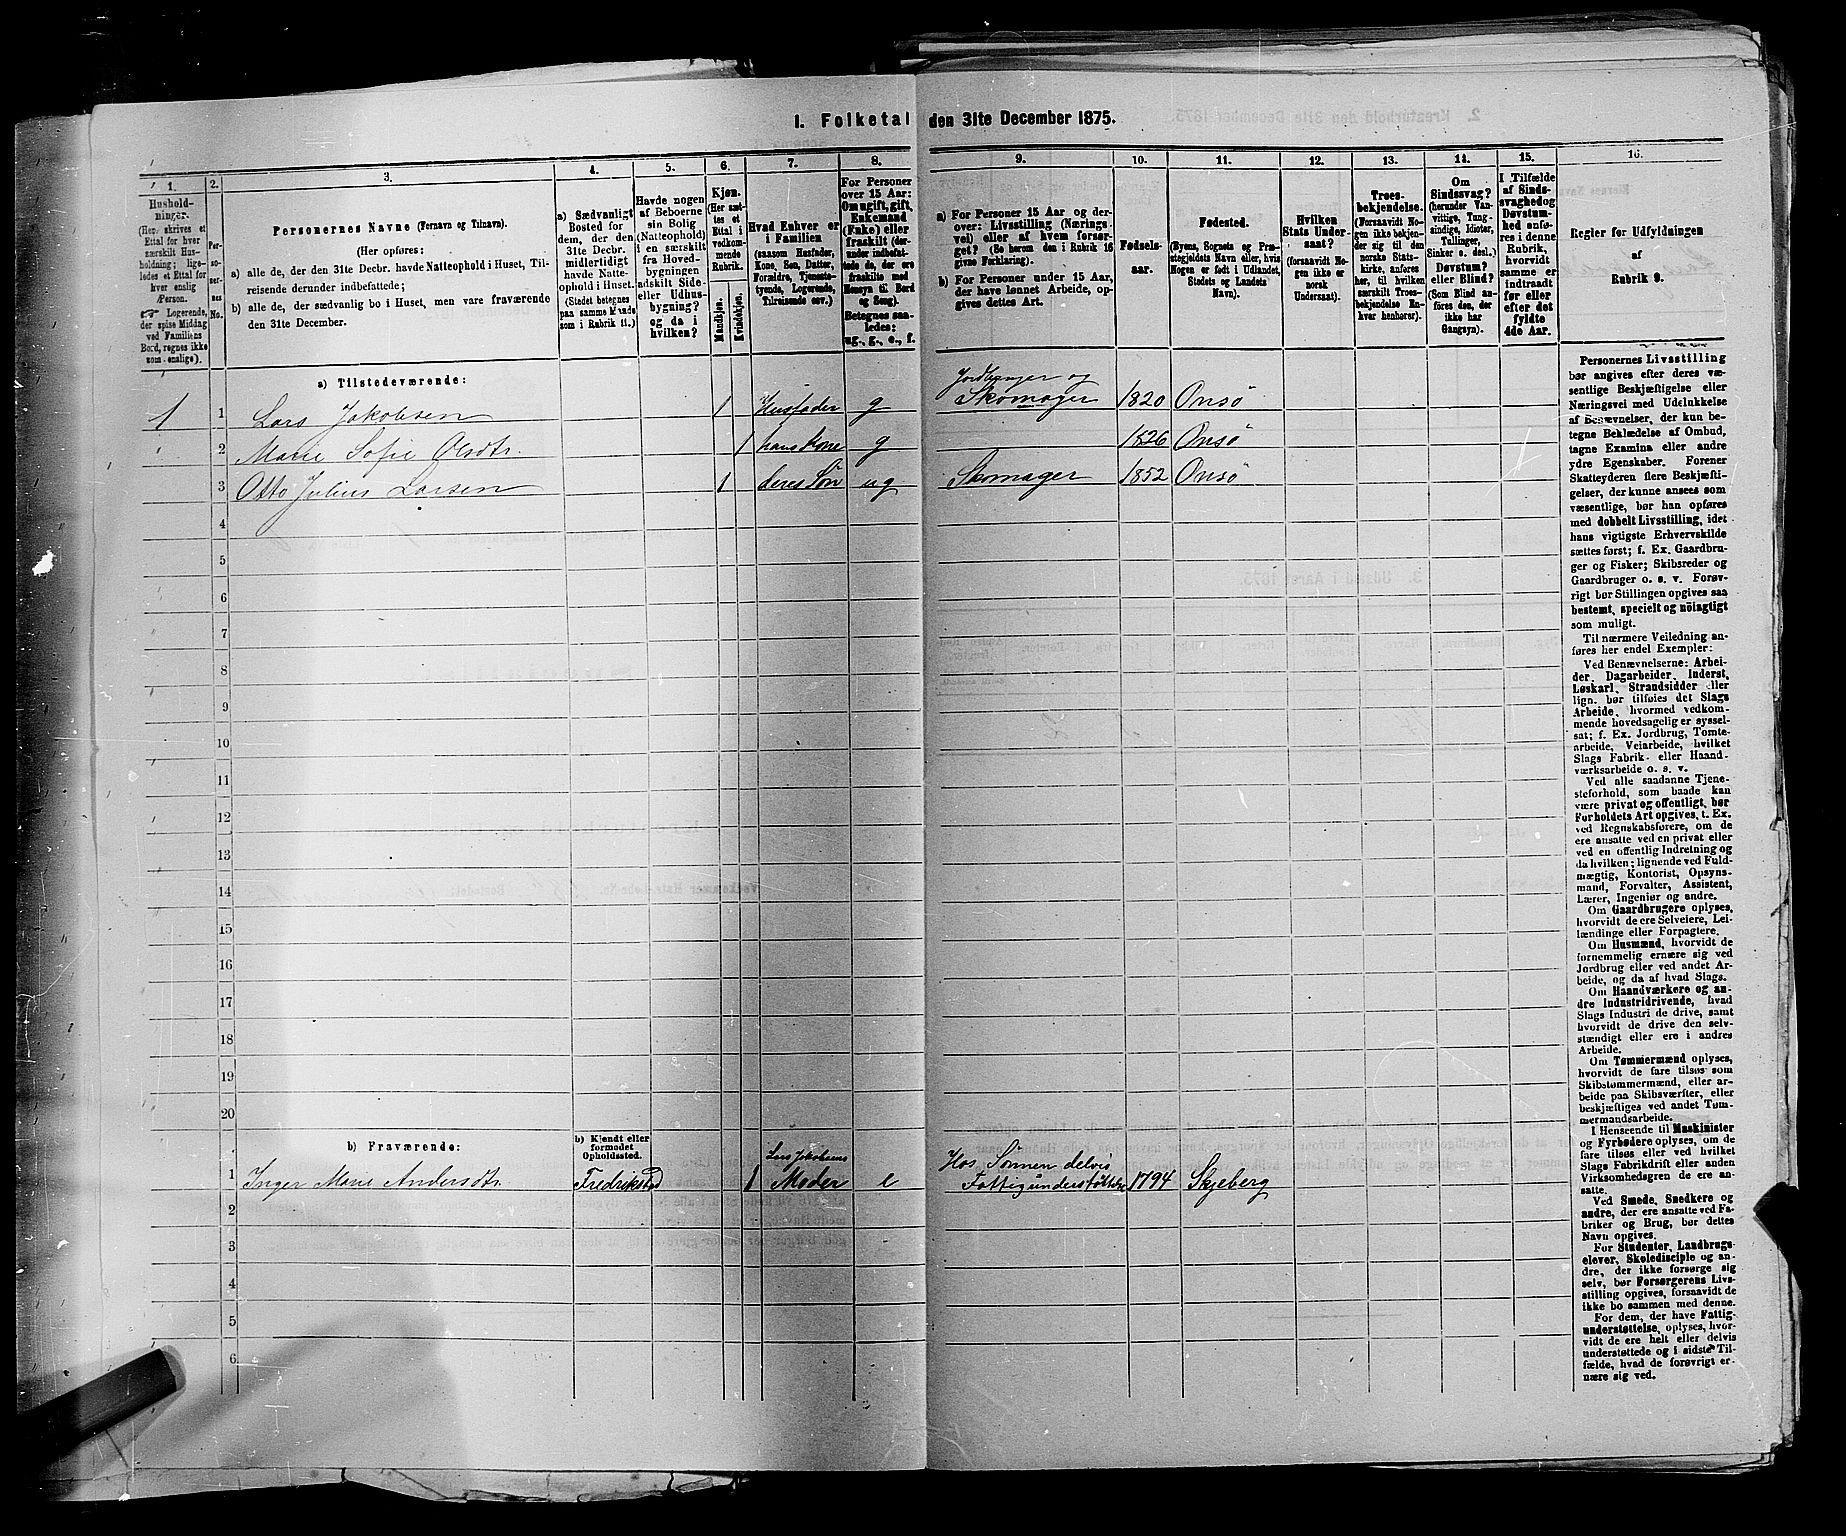 1. Folketal den 31te December 1875.
1. 2. 3. 4. 5. 6. 7. 8. 9. 10. 11. 12. 13. 14. 15. 16.
Hushold-
ninger.
(Her skrives et
Ettal for hver
særskilt Hus-
holdning; lige-
ledes et Ettal for
hver enslig
Person.
Logerende,
der spise Middag
ved Familiens
Bord, regnes ikke
som enslige).
Per-
soner-
nes
No.
Personernes Navne (Fornavn og Tilnavn).
(Her opføres:
a) alle de, der den 31te Decbr. havde Natteophold i Huset, Til-
reisende derunder indbefattede;
b) alle de, der sædvanlig bo i Huset, men vare fraværende
den 31te December.
a) Sædvanligt
Bosted for
dem, der den
31te Decbr.
midlertidigt
havde Natte-
ophold i Huset.
(Stedet betegnes
paa samme Maade
som i Rubrik 11.)
Havde nogen
af Beboerne
sin Bolig
(Natteophold)
i en særskilt
fra Hoved-
bygningen
adskilt Side-
eller Udhus-
bygning?
og da i
hvilken?
Kjøn.
(Her sæt-
tes et
Ettal i
vedkom-
mende
Rubrik.
Mandkjøn.
Kvindekjøn.
Hvad Enhver er
i Familien
(saasom Husfader,
Kone, Søn, Datter,
Forældre, Tjeneste-
tyende, Logerende,
Tilreisende osv.)
For Personer
over 15 Aar:
Om ugift, gift,
Enkemand
(Enke) eller
fraskilt (der-
under indbefat-
tede de, der ere
fraskilte med
Hensyn til Bord
og Seng).
Betegnes saa-
ledes:
ug., g., e., f.
a) For Personer 15 Aar og der-
over: Livsstilling (Nærings-
vei) eller af hvem forsør-
get? (Se herom den i Rubrik 16
givne Forklaring).
b) For Personer under 15 Aar,
der have lønnet Arbeide, op-
gives dettes Art.
Fødsels-
aar.
Fødested.
(Byens, Sognets og Præ-
stegjeldets Navn, eller, hvis
Nogen er født i Udlandet,
Stedets og Landets
Navn).
Hvilken
Stats Under-
saat?
(forsaavidt No-
gen ikke er
norsk
Undersaat).
Troes-
bekjendelse.
(Forsaavidt No-
gen ikke bekjen-
der sig til den
norske Stats-
kirke, anføres
her, til hvilken
særskilt Troes-
bekjendelse En-
hver henhører).
Om
Sindssvag?
(herunder Van-
vittige, Tung-
sindige, Idioter,
Tullinger,
Sinker o. desl.)
Døvstum?
eller Blind?
(Som Blind an-
føres den, der
ikke har
Gangsyn).
I Tilfælde
af Sinds-
svaghed og
Døvstum-
hed anfø-
res i denne
Rubrik,
hvorvidt
samme er
indtraadt
før eller
efter det
fyldte
4de Aar.
Regler for Udfyldningen
af
Rubrik 9.
a) Tilstedeværende:
Jordbruger og
1 1 Lars Jakobsen 1 Husfader g Skomager 1820 Onsö
2 Marie Sofie Olsdtr. 1 hans Kone g 1826 Onsö
3 Otto Julius Larsen 1 deres Sön ug Skomager 1852 Onsö
4
5
6
7
8
9
10
11
12
13
14
15
16
17
18
19
20
b) Fraværende:
b) Kjendt eller
formodet
Opholdssted.
Lars Jakobsens Hos Sönnen delvis
1 Inger Marie Andersdtr. Fredrikstad 1 Moder e Fattigunderstöttet 1794 Skjeberg
2
3
4
5
6
Personernes Livsstilling
bør angives efter deres væ-
sentlige Beskjæftigelse eller
Næringsvei med Udelukkelse
af Benævnelser, der kun be-
tegne Beklædelse af Ombud,
tagne Examina eller andre
ydre Egenskaber. Forener
Skatteyderen flere Beskjæfti-
gelser, der kunne ansees som
væsentlige, bør han opføres
med dobbelt Livsstilling, idet
hans vigtigste Erhvervskilde
sættes først; f. Ex. Gaardbru-
ger og Fisker; Skibsreder og
Gaardbruger o. s. v. Forøv-
rigt bør Stillingen opgives saa
bestemt, specielt og nöiagtigt
som muligt.
Til nærmere Veiledning an-
føres her endel Exempler:
Ved Benævnelserne: Arbei-
der, Dagarbeider, Inderst,
Løskarl, Strandsidder eller
lign. bør tilføies det Slags
Arbeide, hvormed vedkom-
mende hovedsagelig er syssel-
sat; f. Ex. Jordbrug, Tomte-
arbeide, Veiarbeide, hvilket
Slags Fabrik- eller Haand-
værksarbeide o. s. v.
Ved alle saadanne Tjene-
steforhold, som baade kan
være privat og offentligt, bør
Forholdets Art opgives, t. Ex.
ved Regnskabsførere, om de
ere ansatte ved en privat eller
ved en offentlig Indretning og
da hvilken; lignende ved Fuld-
mægtig, Kontorist, Opsyns-
mand, Forvalter, Assistent,
Lærer, Ingeniør og andre.
Om Gaardbrugere oplyses,
hvorvidt de ere Selveiere, Lei-
lændinge eller Forpagtere.
Om Husmænd, hvorvidt de
fornemmelig ernære sig ved
Jordbrug eller ved andet Ar-
beide, og da af hvad Slags.
Om Haandværkere og an-
dre Industridrivende, hvad
Slags Industri de drive, samt
hvorvidt de drive den selv-
stændigt eller ere i andres
Arbeide.
Om Tømmermænd oplyses,
hvorvidt de fare tilsøs som
Skibstømmermænd, eller ar-
beide paa Skibsværfter, eller
beskjæftiges ved andet Tøm-
mermandsarbeide.
I Henseende til Maskinister
og Fyrbødere oplyses, om de
fare tilsøs eller ved hvilket
Slags Fabrikdrift eller anden
Virksomhedsgren de ere an-
satte.
Ved Smede, Snedkere og
andre, der ere ansatte ved Fa-
briker og Brug, bør dettes
Navn opgives.
For Studenter, Landbrugs-
elever, Skoledisciple og an-
dre, der ikke forsørge sig
selv, bør Forsørgerens Livs-
stilling opgives, forsaavidt de
ikke bo sammen med denne.
For dem, der have Fattig-
understøttelse, oplyses, hvor-
vidt de ere helt eller delvis
understøttede og i sidste Til-
fælde, hvad de forøvrigt er-
nære sig ved.